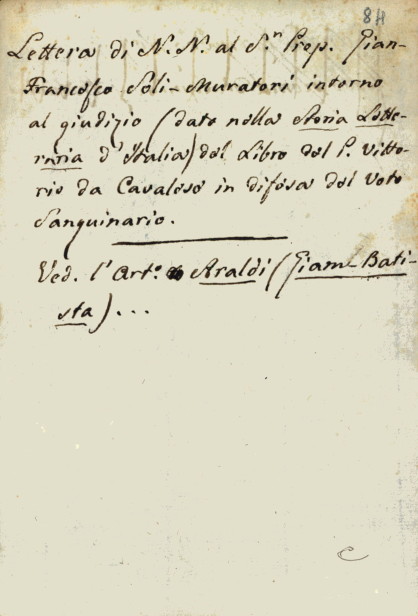 84
Lettera di N. N. al S.ʳ Prop. Gian-
Francesco Soli-Muratori intorno
al giudizio (dato nella Storia Lette-
raria d'Italia) del Libro del P. Vitto-
rio da Cavalese in difesa del Voto
Sanguinario.
Ved. l'Art.º Araldi (Giam-Bati-
sta)...
C